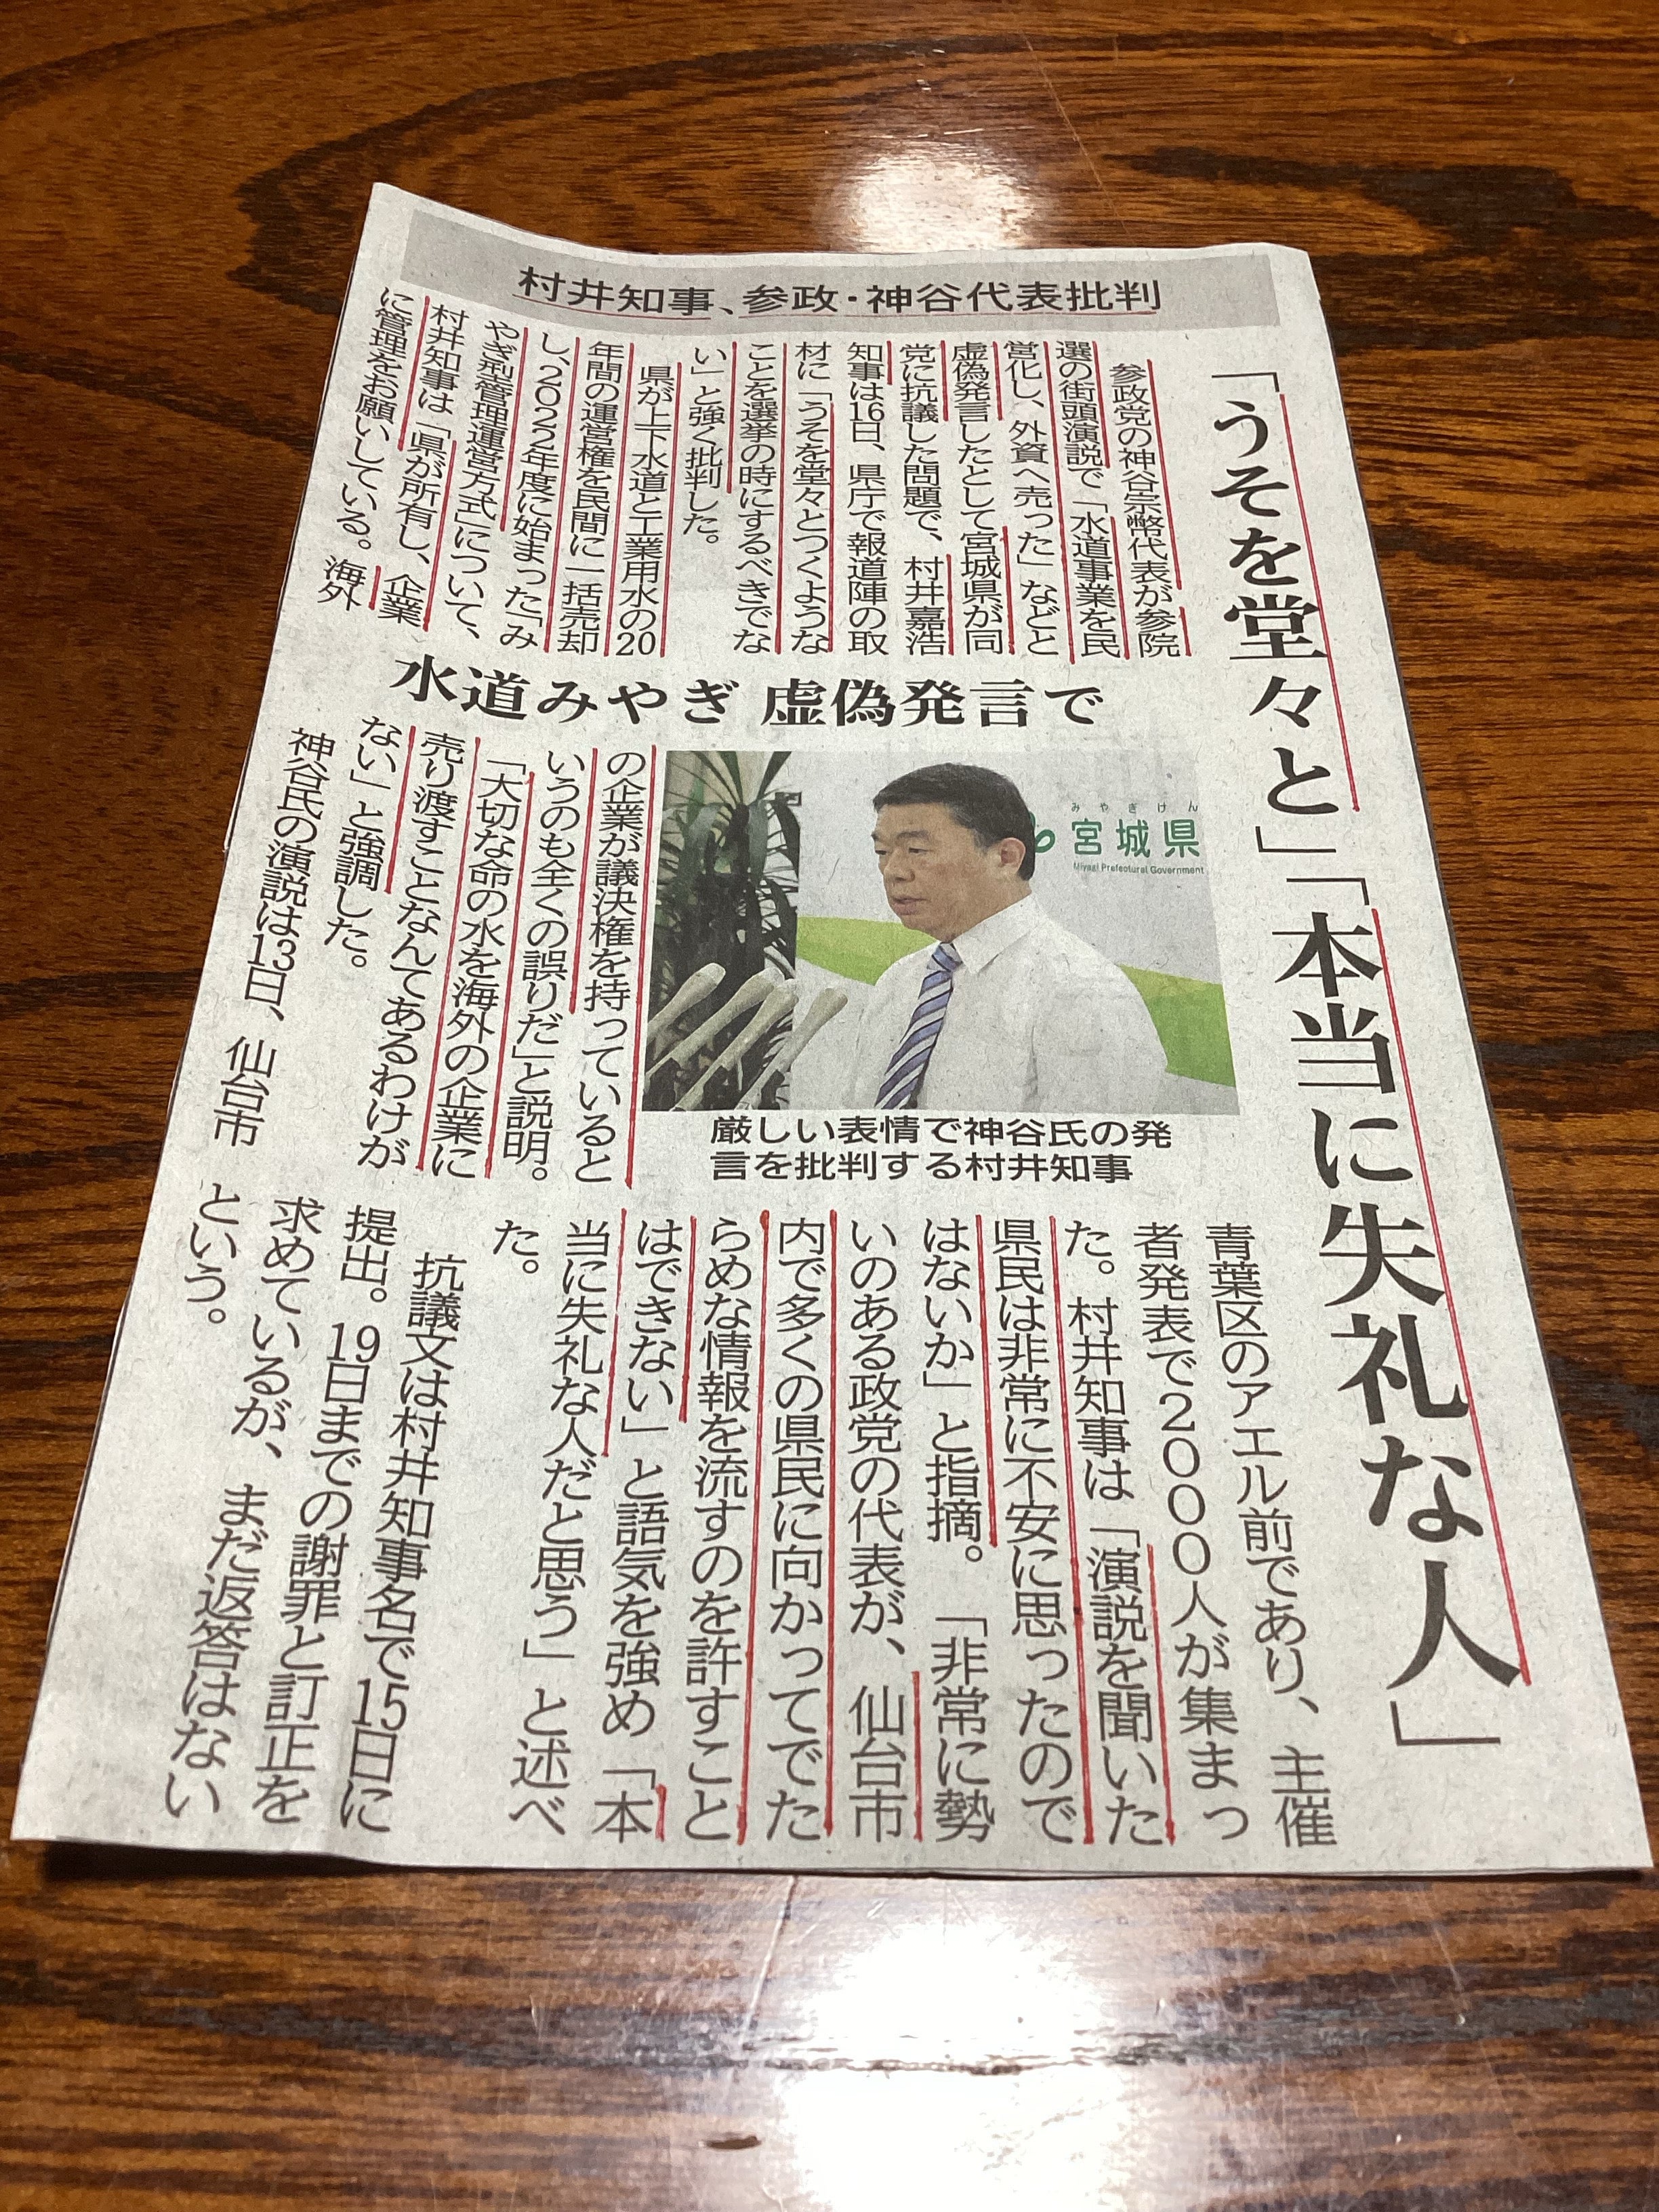 村井知事、参政・神谷代表批判
「うそを堂々と」「本当に失礼な人」
水道みやぎ 虚偽発言で
参政党の神谷宗幣代表が参院
選の街頭演説で「水道事業を民
営化し、外資へ売った」などと
虚偽発言したとして宮城県が同
党に抗議した問題で、村井嘉浩
知事は16日、県庁で報道陣の取
材に「うそを堂々とつくような
ことを選挙の時にするべきでな
い」と強く批判した。
県が上下水道と工業用水の20
年間の運営権を民間に一括売却
し、2022年度に始まった「み
やぎ型管理運営方式」について、
村井知事は「県が所有し、企業
に管理をお願いしている。海外
の企業が議決権を持っていると
いうのも全くの誤りだ」と説明。
「大切な命の水を海外の企業に
売り渡すことなんてあるわけが
ない」と強調した。
神谷氏の演説は13日、仙台市
青葉区のアエル前であり、主催
者発表で2000人が集まっ
た。村井知事は「演説を聞いた
県民は非常に不安に思ったので
はないか」と指摘。「非常に勢
いのある政党の代表が、仙台市
内で多くの県民に向かってでた
らめな情報を流すのを許すこと
はできない」と語気を強め「本
当に失礼な人だと思う」と述べ
た。
抗議文は村井知事名で15日に
提出。19日までの謝罪と訂正を
求めているが、まだ返答はない
という。
みやぎけん
宮城県
Miyagi Prefectural Government
厳しい表情で神谷氏の発
言を批判する村井知事